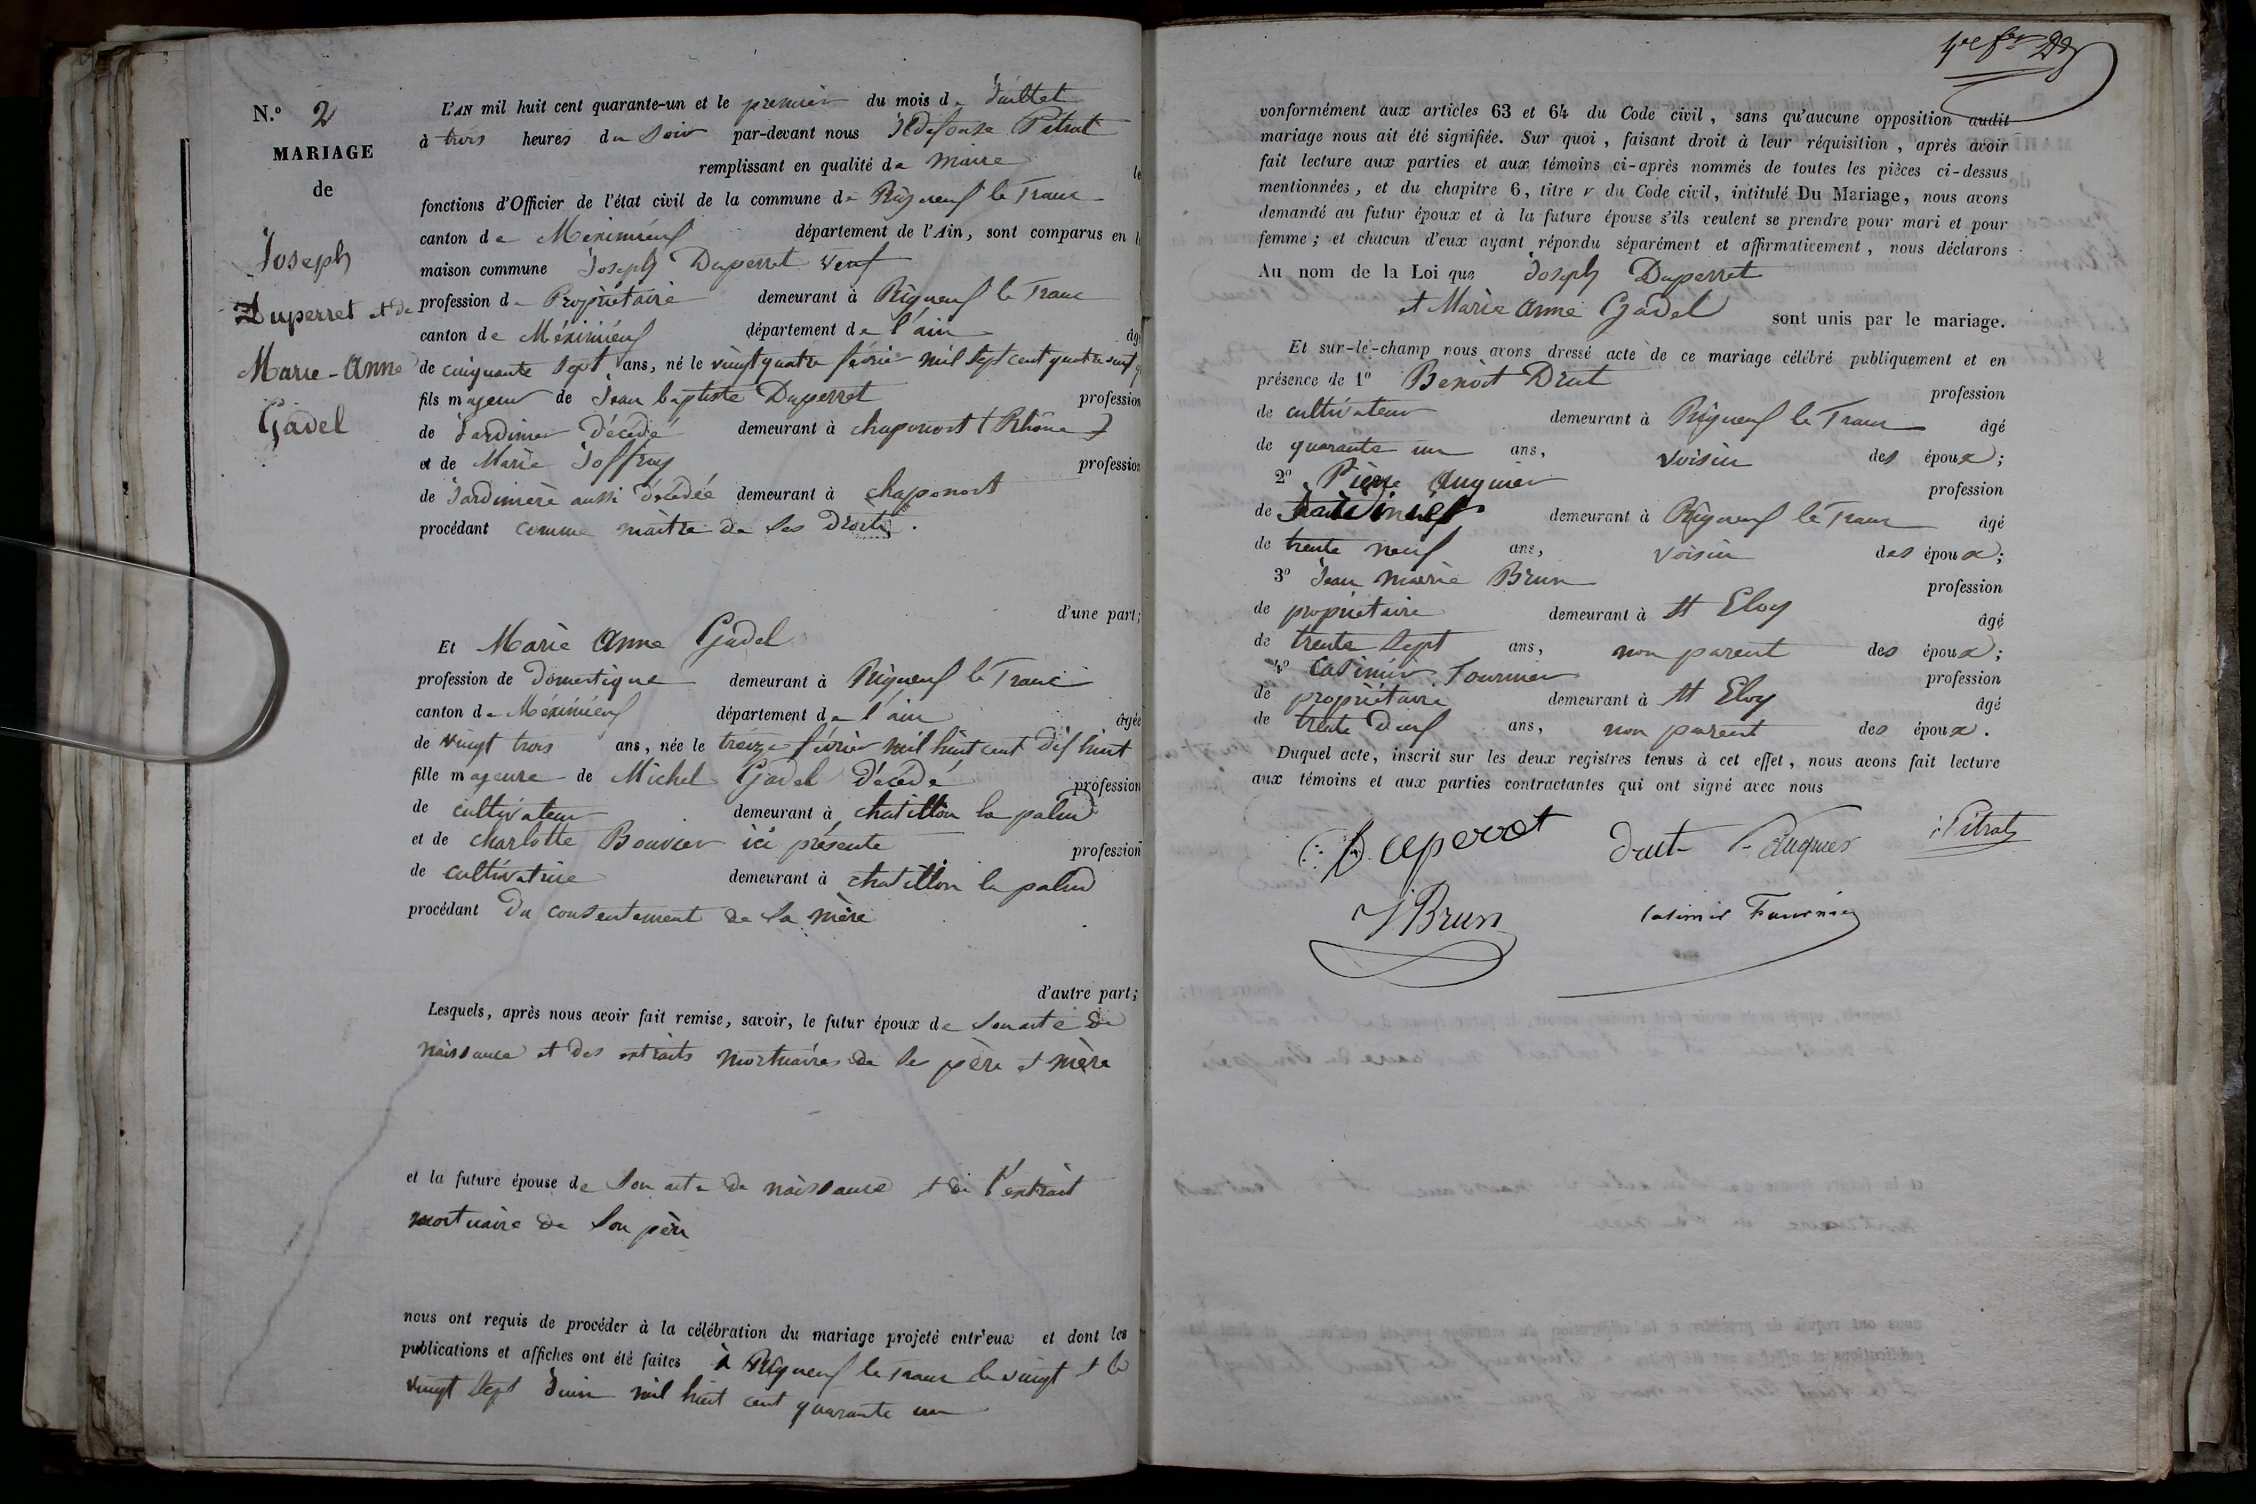 N.º 2
MARIAGE
de
Joseph
Duperret et de
Marie-Anne
Gadel
L'AN mil huit cent quarante-un et le premier du mois de Juillet
à trois heures du Soir par-devant nous Ildefonse Pitrat
remplissant en qualité de Maire le
fonctions d'Officier de l'état civil de la commune de Rigneux le Franc
canton de Méximieux département de l'Ain, sont comparus en l
maison commune Joseph Duperret veuf
profession de Propriétaire demeurant à Rigneux le Franc
canton de Méximieux département de l'ain âg
de cinquante sept ans, né le vingt quatre février mil sept cent quatre vingt q
fils majeur de Jean baptiste Duperret profession
de Jardinier décédé demeurant à chaponost (Rhône)
et de Marie Joffray profession
de Jardinière aussi décédée demeurant à chaponost
procédant comme maître de ses droits.
d'une part;
Et Marie Anne Gadel
profession de domestique demeurant à Rigneux le Franc
canton de Méximieux département de l'ain âgée
de vingt trois ans, née le treize février mil huit cent dix huit
fille majeure de Michel Gadel décédé profession
de cultivateur demeurant à chatillon la palud
et de charlotte Bouvier ici présente profession
de cultivatrice demeurant à chatillon la palud
procédant du consentement de sa mère
d'autre part;
Lesquels, après nous avoir fait remise, savoir, le futur époux de son acte de
naissance et des extraits mortuaires de ses père et mère
et la future épouse de son acte de naissance et de l'extrait
mortuaire de son père
nous ont requis de procéder à la célébration du mariage projeté entr'eux et dont les
publications et affiches ont été faites à Rigneux le franc le vingt et le
vingt sept Juin mil huit cent quarante un
vonformément aux articles 63 et 64 du Code civil, sans qu'aucune opposition audit
mariage nous ait été signifiée. Sur quoi, faisant droit à leur réquisition, après avoir
fait lecture aux parties et aux témoins ci-après nommés de toutes les pièces ci-dessus
mentionnées, et du chapitre 6, titre v du Code civil, intitulé Du Mariage, nous avons
demandé au futur époux et à la future épouse s'ils veulent se prendre pour mari et pour
femme; et chacun d'eux ayant répondu séparément et affirmativement, nous déclarons
Au nom de la Loi que Joseph Duperret
et Marie Anne Gadel sont unis par le mariage.
Et sur-le-champ nous avons dressé acte de ce mariage célébré publiquement et en
présence de 1º Benoit Drut profession
de cultivateur demeurant à Rigneux le Franc âgé
de quarante un ans, voisin des époux;
2º Pierre Auguier profession
de demeurant à Rigneux le Franc âgé
de trente neuf ans, voisin des époux;
3º Jean Marie Brun profession
de propriétaire demeurant à St Eloy âgé
de trente sept ans, non parent des époux;
4º Casimir Fournier profession
de propriétaire demeurant à St Eloy âgé
de trente deux ans, non parent des époux.
Duquel acte, inscrit sur les deux registres tenus à cet effet, nous avons fait lecture
aux témoins et aux parties contractantes qui ont signé avec nous
Duperret Drut Pitrat
J Brun Casimir Fournier